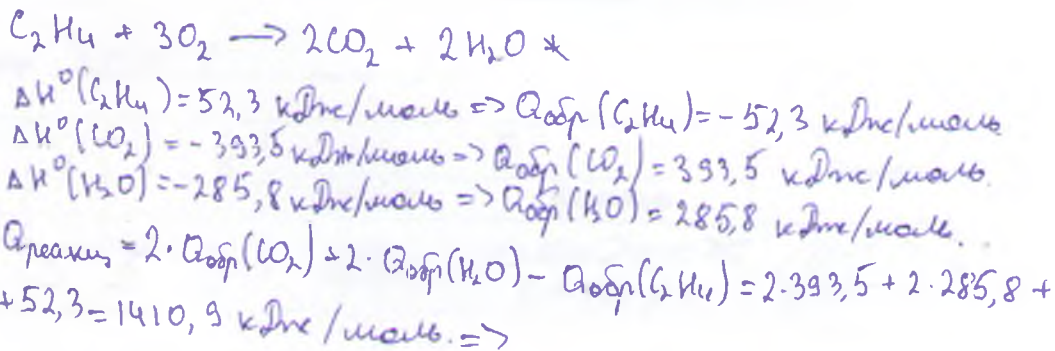 C₂H₄ + 3O₂ ⟶ 2CO₂ + 2H₂O *
ΔH⁰(C₂H₄) = 52,3 кДж/моль => Qобр(C₂H₄) = -52,3 кДж/моль
ΔH⁰(CO₂) = -393,5 кДж/моль => Qобр(CO₂) = 393,5 кДж/моль.
ΔH⁰(H₂O) = -285,8 кДж/моль => Qобр(H₂O) = 285,8 кДж/моль.
Qреакц = 2·Qобр(CO₂) + 2·Qобр(H₂O) - Qобр(C₂H₄) = 2·393,5 + 2·285,8 +
+52,3 = 1410,9 кДж/моль. =>